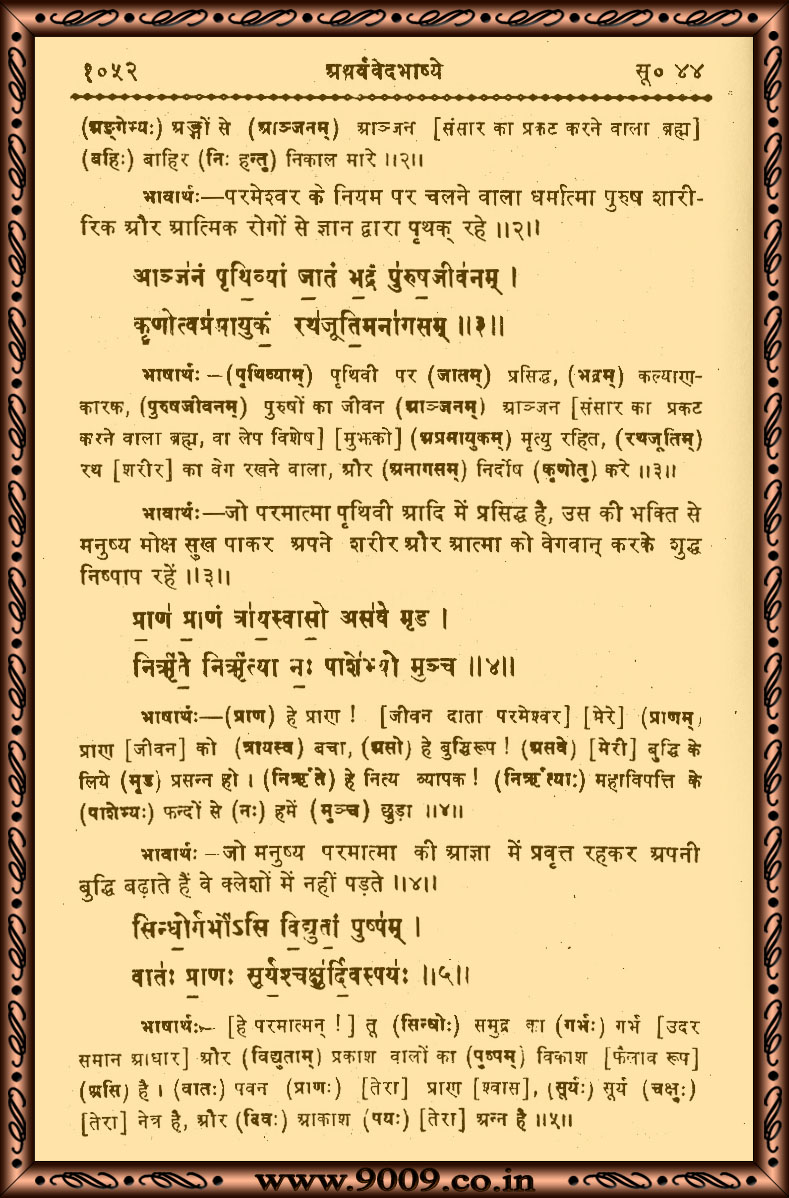 १०५२ अथर्ववेदभाष्ये सू० ४४
(अङ्गेभ्यः) अङ्गों से (आञ्जनम्) आञ्जन [संसार का प्रकट करने वाला ब्रह्म]
(बहिः) बाहिर (निः हन्तु) निकाल मारे ॥२॥
भावार्थः—परमेश्वर के नियम पर चलने वाला धर्मात्मा पुरुष शारी-
रिक और आत्मिक रोगों से ज्ञान द्वारा पृथक् रहे ॥२॥
आञ्ज॑नं पृथि॒व्यां जा॒तं भ॒द्रं पु॑रुष॒जीव॑नम् ।
कृ॒णोत्वप्र॑मायुकं॒ रथ॑जूति॒मना॑गसम् ॥३॥
भाषार्थः—(पृथिव्याम्) पृथिवी पर (जातम्) प्रसिद्ध, (भद्रम्) कल्याण-
कारक, (पुरुषजीवनम्) पुरुषों का जीवन (आञ्जनम्) आञ्जन [संसार का प्रकट
करने वाला ब्रह्म, वा लेप विशेष] [मुझको] (अप्रमायुकम्) मृत्यु रहित, (रथजूतिम्)
रथ [शरीर] का वेग रखने वाला, और (अनागसम्) निर्दोष (कृणोतु) करे ॥३॥
भावार्थः—जो परमात्मा पृथिवी आदि में प्रसिद्ध है, उस की भक्ति से
मनुष्य मोक्ष सुख पाकर अपने शरीर और आत्मा को वेगवान् करके शुद्ध
निष्पाप रहें ॥३॥
प्राण॑ प्रा॒णं त्रा॑यस्वासो॒ अस॑वे मृड ।
निर्ऋ॑ते॒ निर्ऋ॑त्या नः॒ पाशे॑भ्यो मुञ्च ॥४॥
भाषार्थः—(प्राण) हे प्राण ! [जीवन दाता परमेश्वर] [मेरे] (प्राणम्)
प्राण [जीवन] को (त्रायस्व) बचा, (असो) हे बुद्धिरूप ! (असवे) [मेरी] बुद्धि के
लिये (मृड) प्रसन्न हो । (निर्ऋते) हे नित्य व्यापक ! (निर्ऋत्याः) महाविपत्ति के
(पाशेभ्यः) फन्दों से (नः) हमें (मुञ्च) छुड़ा ॥४॥
भावार्थः—जो मनुष्य परमात्मा की आज्ञा में प्रवृत्त रहकर अपनी
बुद्धि बढ़ाते हैं वे क्लेशों में नहीं पड़ते ॥४॥
सिन्धो॒र्गर्भो॑ऽसि वि॒द्युतां॒ पुष्प॑म् ।
वातः॑ प्रा॒णः सूर्य॒श्चक्षु॑र्दि॒वस्पयः॑ ॥५॥
भाषार्थः—[हे परमात्मन् !] तू (सिन्धोः) समुद्र का (गर्भः) गर्भ [उदर
समान आधार] और (विद्युताम्) प्रकाश वालों का (पुष्पम्) विकाश [फैलाव रूप]
(असि) है । (वातः) पवन (प्राणः) [तेरा] प्राण [श्वास], (सूर्यः) सूर्य (चक्षुः)
[तेरा] नेत्र है, और (दिवः) आकाश (पयः) [तेरा] अन्न है ॥५॥
www.9009.co.in